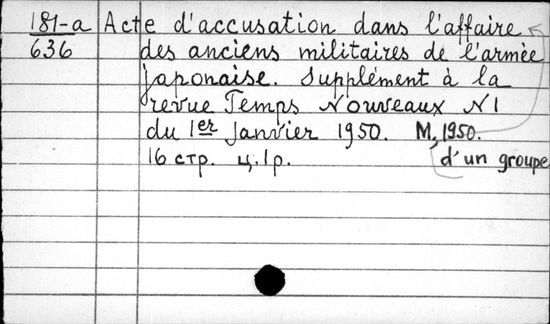 181-a Acte d'accusation dans l'affaire
636 des anciens militaires de l'armée
japonaise. Supplément à la
revue Temps Nouveaux N1
du 1er Janvier 1950. M, 1950.
16 стр. ц. 1р. d'un groupe